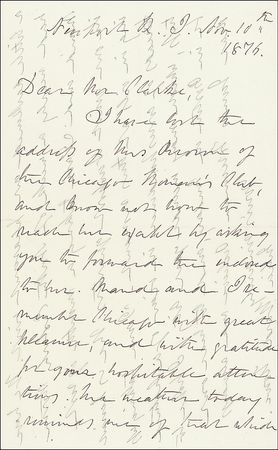 Newport R. I. Nov. 10th
1876.
Dear Mrs
I have lost the
address of Mrs Browne of
the Chicago Woman's Club,
and know not how to
reach her except by asking
you to forward the enclosed
to her. Maud and I re-
member Chicago with great
pleasure, and with gratitude
for your hospitable atten-
tions. The weather today
reminds me of that which